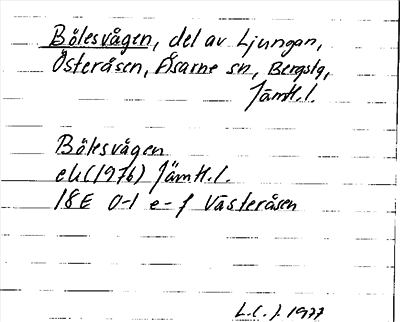 Bölesvågen, del av Ljungan,
Österåsen, Åsarne sn, Bergslg,
Jämtl.l.
Bölesvågen
ek (1976) Jämtl.l.
18E 0-1 e-f Västeråsen
L.C.J. 1977